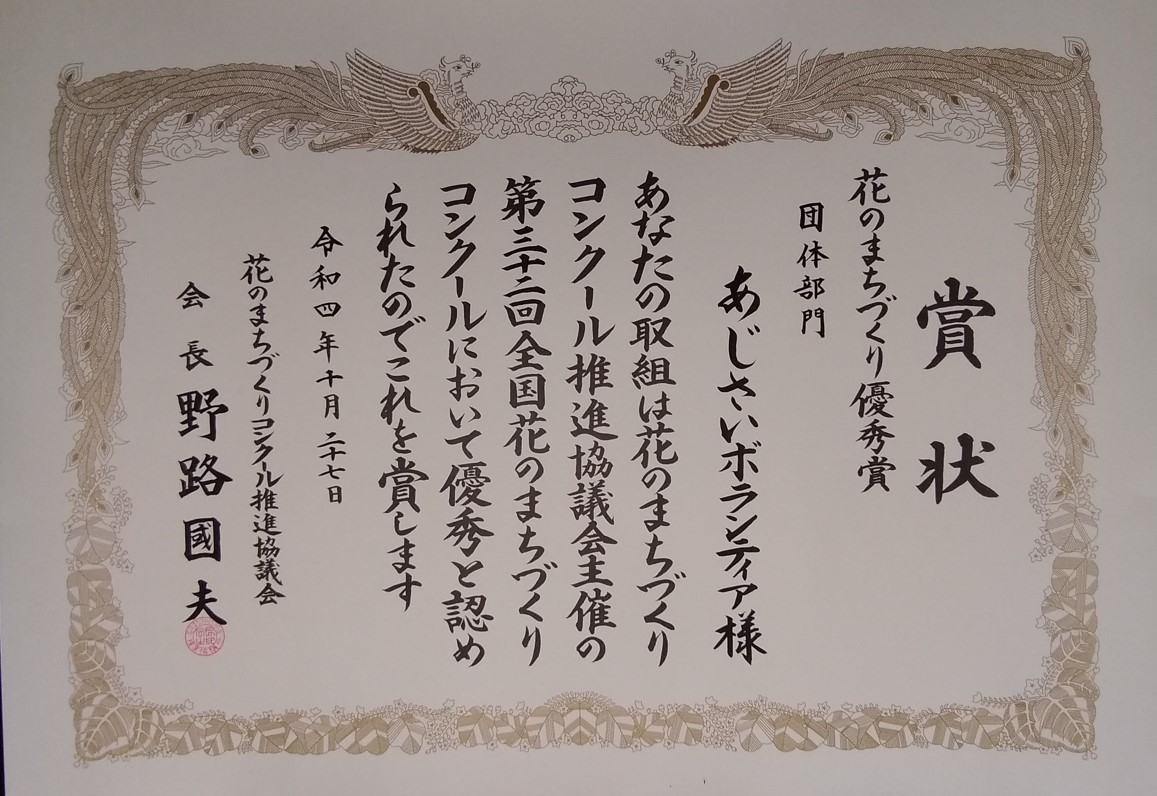 賞状
花のまちづくり優秀賞
団体部門
あじさいボランティア様
あなたの取組は花のまちづくり
コンクール推進協議会主催の
第三十二回全国花のまちづくり
コンクールにおいて優秀と認め
られたのでこれを賞します
令和四年十月二十七日
花のまちづくりコンクール推進協議会
会長 野路國夫